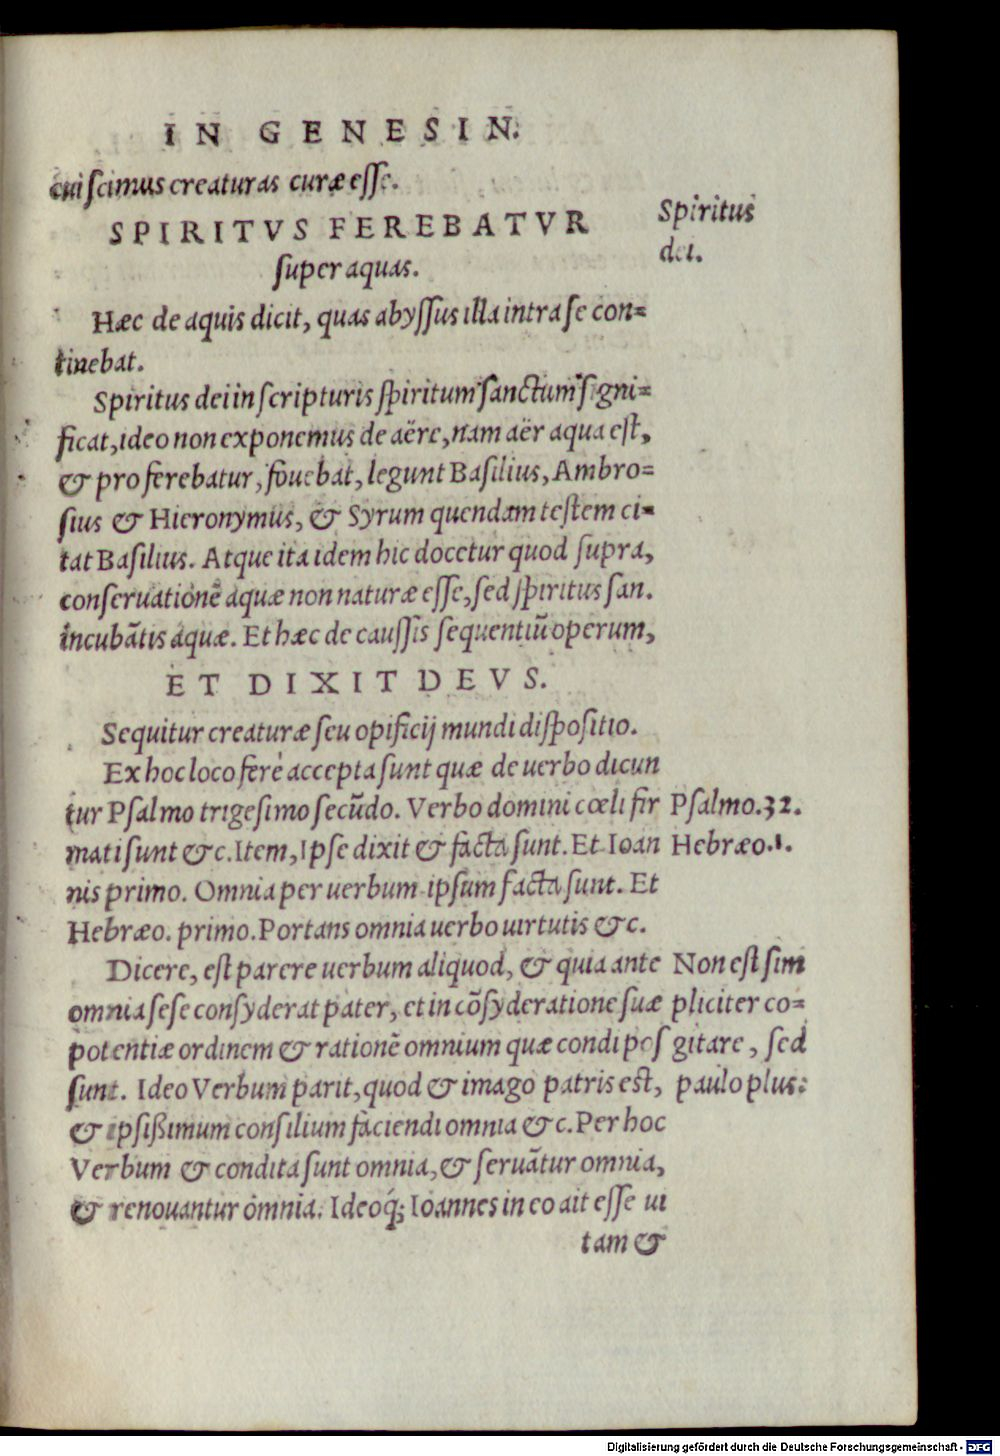 IN GENESIN.
cui scimus creaturas curæ esse.
SPIRITVS FEREBATVR
super aquas.
Spiritus
dei.
Hæc de aquis dicit, quas abyssus illa intra se con=
tinebat.
Spiritus dei in scripturis spiritum sanctum signi=
ficat, ideo non exponemus de aëre, nam aër aqua est,
& pro ferebatur, fouebat, legunt Basilius, Ambro=
sius & Hieronymus, & Syrum quendam testem ci=
tat Basilius. Atque ita idem hic docetur quod supra,
conseruationē aquæ non naturæ esse, sed spiritus san.
incubātis aquæ. Et hæc de caussis sequentiū operum,
ET DIXIT DEVS.
Sequitur creaturæ seu opificij mundi dispositio.
Ex hoc loco ferè accepta sunt quæ de uerbo dicun
tur Psalmo trigesimo secūdo. Verbo domini cœli fir
mati sunt &c. Item, Ipse dixit & facta sunt. Et Ioan
nis primo. Omnia per uerbum ipsum facta sunt. Et
Hebræo. primo. Portans omnia uerbo uirtutis &c.
Psalmo.32.
Hebræo.1.
Dicere, est parere uerbum aliquod, & quia ante
omnia sese consyderat pater, et in cōsyderatione suæ
potentiæ ordinem & rationē omnium quæ condi pos
sunt. Ideo Verbum parit, quod & imago patris est,
& ipsißimum consilium faciendi omnia &c. Per hoc
Verbum & condita sunt omnia, & seruātur omnia,
& renouantur omnia. Ideoq́; Ioannes in eo ait esse ui
Non est sim
pliciter co=
gitare, sed
paulo plus:
tam &
Digitalisierung gefördert durch die Deutsche Forschungsgemeinschaft - DFG